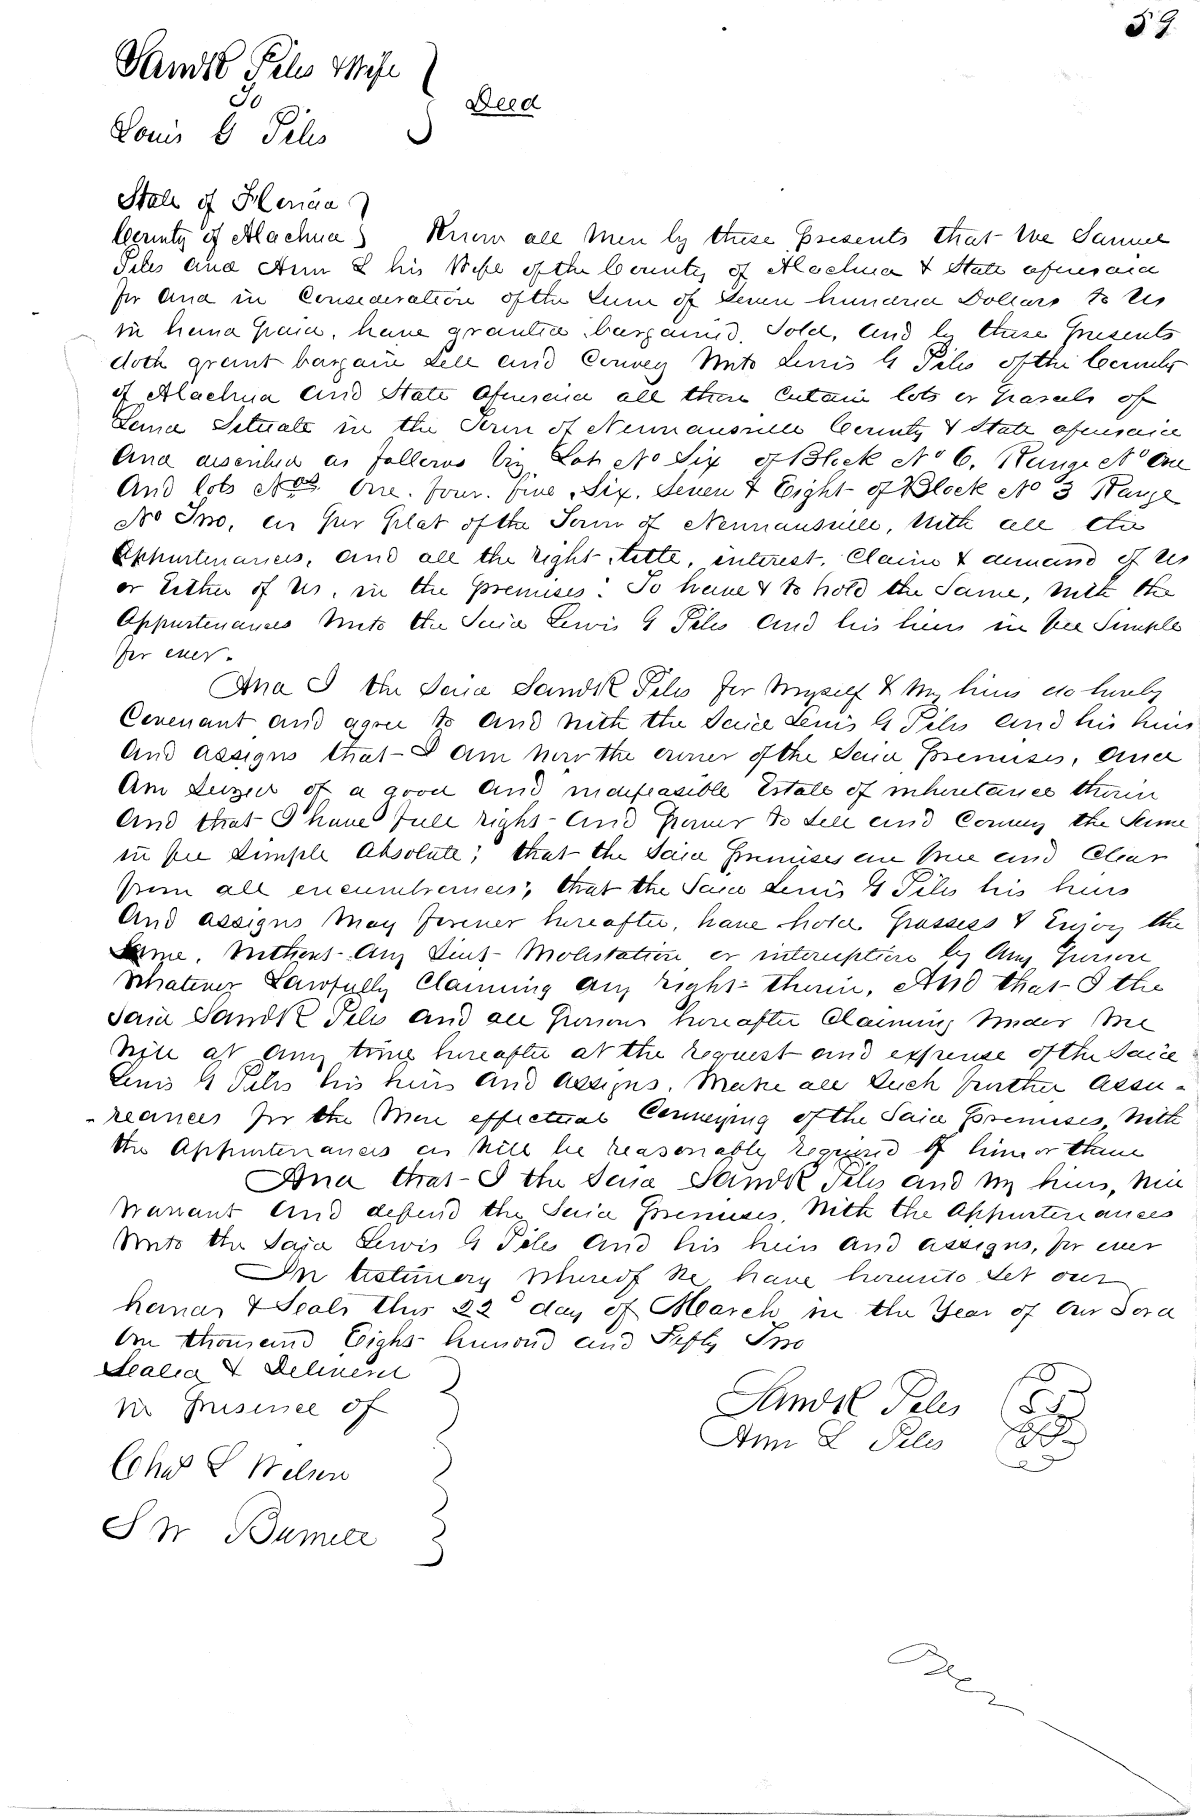 59
Saml R Piles & Wife
To
Louis G Piles
Deed
State of Florida
County of Alachua Know all Men by these Presents that We Samuel
Piles and Ann L his Wife of the County of Alachua & State aforesaid
for and in Consideration of the Sum of Seven hundred Dollars to Us
in hand paid, have granted bargained, Sold, and by these presents
doth grant bargain Sell and Convey Unto Lewis G Piles of the County
of Alachua and State aforesaid all those Certain lots or parcels of
Land Situate in the Town of Newnansville County & State aforesaid
and described as follows viz Lot No Six of Block No 6, Range No One
And lots Nos One. four. five, Six, Seven & Eight of Block No 3 Range
No Two, as per Plat of the Town of Newnansville, With all the
Appurtenances, and all the right, title, interest, Claim & demand of Us
or Either of Us, in the premises: To have & to hold the Same, With the
Appurtenances Unto the Said Lewis G Piles and his heirs in fee Simple
for ever.
And I the Said Saml R Piles for Myself & My heirs do hereby
Covenant and agree to and With the Said Lewis G Piles and his heirs
And assigns that I am now the owner of the Said premises, and
Am Seized of a good and indefeasible Estate of inheritance therein
And that I have full right and Power to Sell and Convey the Same
in fee Simple Absolute; that the Said premises are free and Clear
from all encumbrances; that the Said Lewis G Piles his heirs
And assigns May forever hereafter, have hold Possess & Enjoy the
Same, Without any Suit Molestation or interruption by Any person
Whatever Lawfully Claiming any right therein, And that I the
Said Saml R Piles and all persons hereafter Claiming Under Me
Will at any time hereafter at the request and expense of the Said
Lewis G Piles his heirs and assigns. Make all Such further assu-
-reances for the More effectual Conveying of the Said premises, With
the Appurtenances as Will be reasonably required of him or them
And that I the Said Saml R Piles and My heirs, Will
Warrant and defend the Said premises, With the Appurtenances
Unto the Said Lewis G Piles and his heirs and assigns, for ever
In testimony Whereof We have hereunto Set our
hands & Seals this 22d day of March in the Year of Our Lord
One thousand Eight hundred and Fifty Two
Sealed & Delivered
in presence of
Chas L Wilson
S W Burnett
Saml R Piles
Ann L Piles